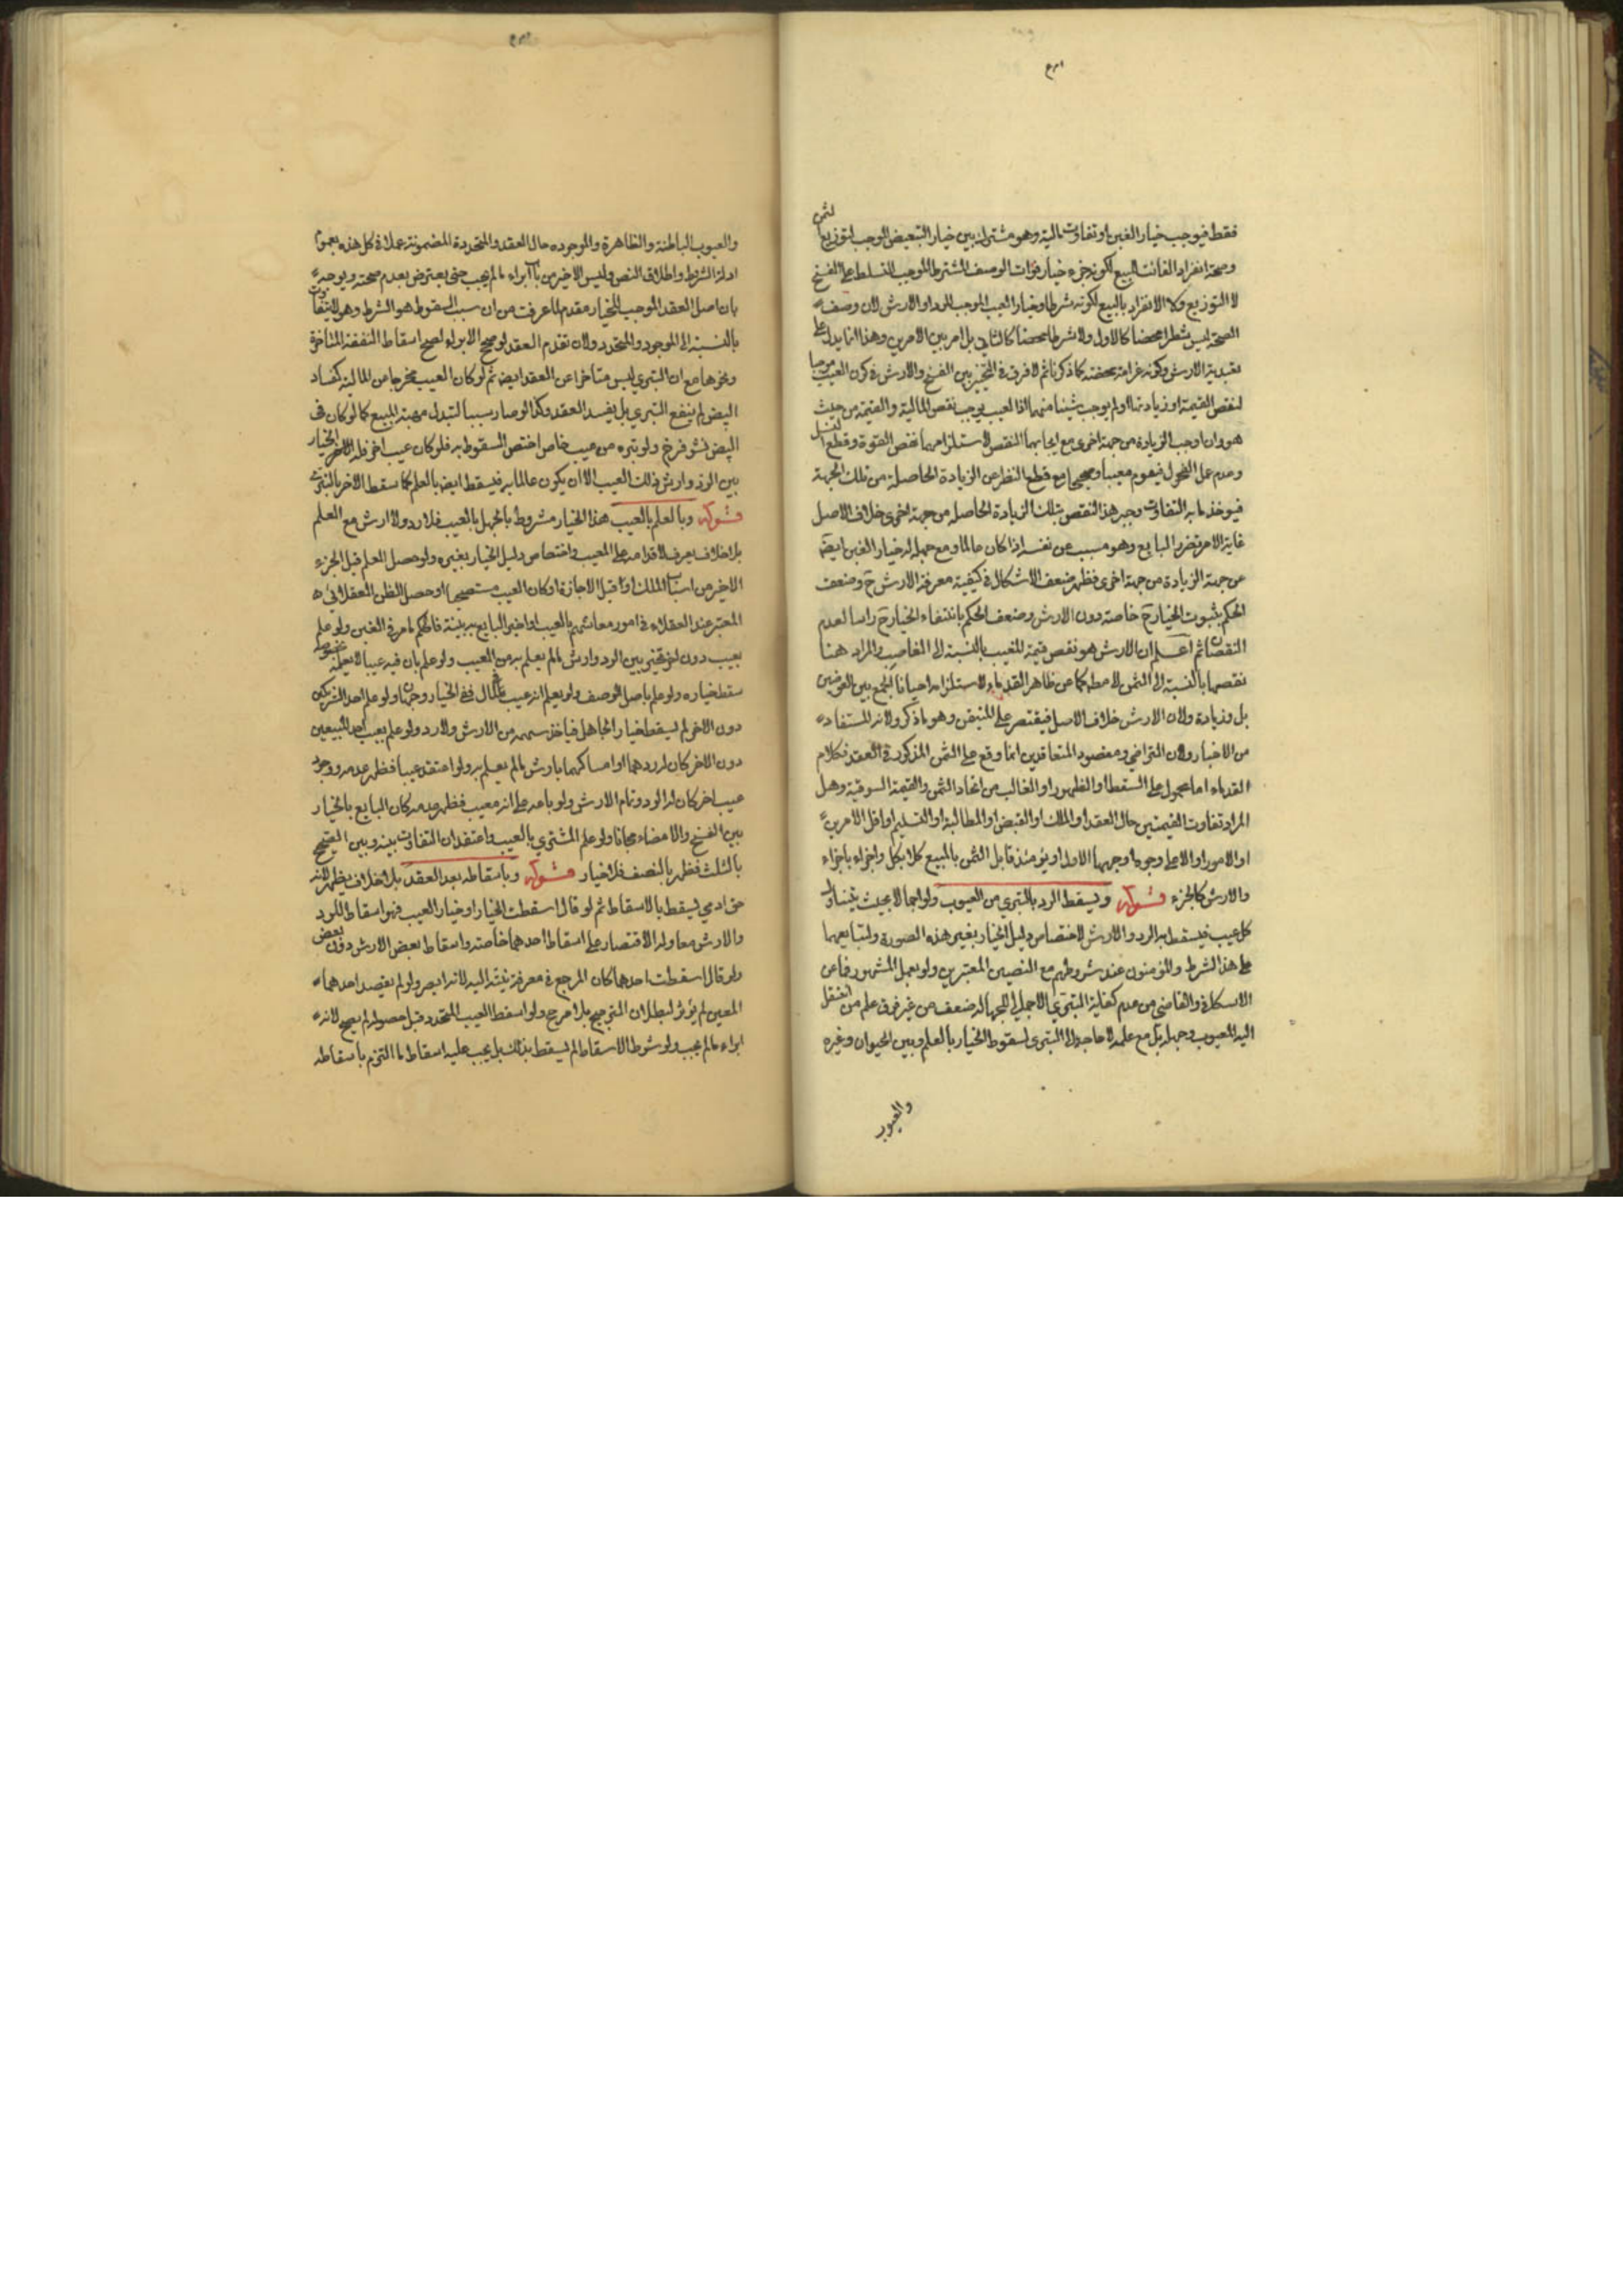 فقط فيوجب خيار الغبن او تفاوت مالية وهو مشترك بين خيار التبعيض الموجب لتوزيع الثمن
وصحة انفراد الفائت بالبيع لكونه جزء وخيار فوات الوصف المشترط الموجب للتسلط على الفسخ
لا التوزيع ولا الانفراد بالبيع لكونه شرطا وخيار العيب الموجب للرد او الارش لان وصف
الصحة ليس شطرا محضا كالاول ولا شرطا محضا كالثاني بل امر بين الامرين وهذا انما يدل على
تعبدية الارش وكونه غرامة محضة كما ذكرنا ثم لا فرق في التخيير بين الفسخ والارش في كون العيب موجبا
لنقص القيمة او زيادتها او لم يوجب شيئا منهما اذ العيب يوجب نقص المالية والقيمة من حيث
هو وان اوجب الزيادة من جهة اخرى مع ايجابها النقص لاستلزامهما نقص القوة وقطع النسل
وعدم عمل الفحول فيقوم معيبا وصحيحا مع قطع النظر عن الزيادة الحاصلة من تلك الجهة
فيؤخذ ما به التفاوت وجبر هذا النقص بتلك الزيادة الحاصلة من جهة اخرى خلاف الاصل
غاية الامر تضرر البايع وهو مسبب عن نفسه اذا كان عالما ومع جهله له خيار الغبن ايضا
من جهة الزيادة من جهة اخرى فظهر ضعف الاشكال في كيفية معرفة الارش ح وضعف
الحكم بثبوت الخيار ح خاصة دون الارش وضعف الحكم بانتفاء الخيار ح راسا لعدم
النقصان ثم اعلم ان الارش هو نقص قيمة المعيب بالنسبة الى الغاصب والمراد هنا
نقصها بالنسبة الى الثمن لا مطلقا كما عن ظاهر القدماء لاستلزامه احيانا الجمع بين العوضين
بل وزيادة ولان الارش خلاف الاصل فيقتصر على المتيقن وهو ما ذكر ولانه المستفاد
من الاخبار ولان التراضي ومقصود المتعاقدين انما وقع على الثمن المذكور في العقد فكلام
القدماء اما محمول على السقط او الظهور او الغالب من اتحاد الثمن والقيمة السوقية وهل
المراد تفاوت القيمتين حال العقد او الملك او القبض او المطالبة او التسليم او اقل الامرين
او الامور او الاعلى وجوه اوجهها الاول اذ يومئذ قابل الثمن بالمبيع كلا بكل واجزاء باجزاء
والارش كالجزء قوله ويسقط الرد بالتبري من العيوب ولو اجمالا بحيث يتناول
كل عيب فيسقط به الرد والارش لاختصاص دليل الخيار بغير هذه الصورة ولتبايعهما
على هذا الشرط والمؤمنون عند شروطهم مع النصين المعتبرين ولو بعمل المشهور فما عن
الاسكافي والقاضي من عدم كفاية التبري الاجمالي للجهالة ضعف من غير فرق علم من انتقل
اليه المعيوب وجهله بل مع علمه لا حاجة الى التبري لسقوط الخيار بالعلم وبين الحيوان وغيره
والعيوب
والعيوب الباطنة والظاهرة والموجوده حال العقد والمتجددة المضمونة عملا في كل هذه بعموم
ادلة الشرط واطلاق النص وليس الاخير من باب ابراء ما لم يجب حتى يعترض بعدم صحته ويوجه
بان اصل العقد الموجب للخيار مقدم لما عرفت من ان سبب السقوط هو الشرط وهو لا يتفاوت
بالنسبة الى الموجود والمتجدد ولان تقدم العقد لو صحح الابراء لصح اسقاط النفقة المتاخرة
ونحوها مع ان التبري ليس متاخرا عن العقد ايضا ثم لو كان العيب مخرجا من المالية كفساد
البيض لم ينفع التبري بل يفسد العقد وكذا لو صار سببا لتبدل مهية المبيع كما لو كان في
البيض نشو فرخ ولو تبره من عيب خاص اختص السقوط به فلو كان عيب اخر فله الخيار
بين الرد وارش ذلك العيب الا ان يكون عالما به فيسقط ايضا بالعلم كما سقط الاخر بالتبري
قوله وبالعلم بالعيب هذا الخيار مشروط بالجهل بالعيب فلا رد ولا ارش مع العلم
بلا خلاف يعرف لاقدامه على المعيب واختصاص دليل الخيار بغيره ولو حصل العلم قبل الجزء
الاخير من اسباب الملك او قبل الاجازة او كان العيب مستصحبا او حصل الظن العقلائي
المعتبر عند العقلاء في امور معاشهم بالعيب او اخبر البايع به بينة فالحكم ما مر في الغبن ولو علم
بعيب دون اخر تخير بين الرد وارش ما لم يعلم به من العيب ولو علم بان فيه عيبا لا يعلمه بخصوصه
سقط خياره ولو علم باصل الوصف ولو يعلم انه عيب ففي الخيار وجهان ولو علم احد الشريكين
دون الاخر لم يسقط خيار الجاهل فياخذ سهمه من الارش ولا رد ولو علم بعيب احد المبيعين
دون الاخر كان له ردهما او امساكهما بارش ما لم يعلم به ولو اعتقد عيبا فظهر عدمه ووجود
عيب اخر كان له الرد وتمام الارش ولو باعه على انه معيب فظهر عدمه كان البايع بالخيار
بين الفسخ والامضاء مجانا ولو علم المشتري بالعيب واعتقد ان التفاوت بينه وبين الصحيح
بالثلث فظهر بالنصف فلا خيار قوله وباسقاطه بعد العقد بلا خلاف يظهر لانه
حق ادمي يسقط بالاسقاط ثم لو قال اسقطت الخيار او خيار العيب فهو اسقاط للرد
والارش معا وله الاقتصار على اسقاط احدهما خاصة واسقاط بعض الارش دون بعض
ولو قال اسقطت احدهما كان المرجع في معرفة نيته اليه لانه ابصر ولو لم يقصد احدهما
المعين لم يؤثر لبطلان الترجيح بلا مرجح ولو اسقط العيب المتجدد قبل حصوله لم يصح لانه
ابراء ما لم يجب ولو شرط الاسقاط لم يسقط بذلك بل يجب عليه اسقاط ما التزم باسقاطه